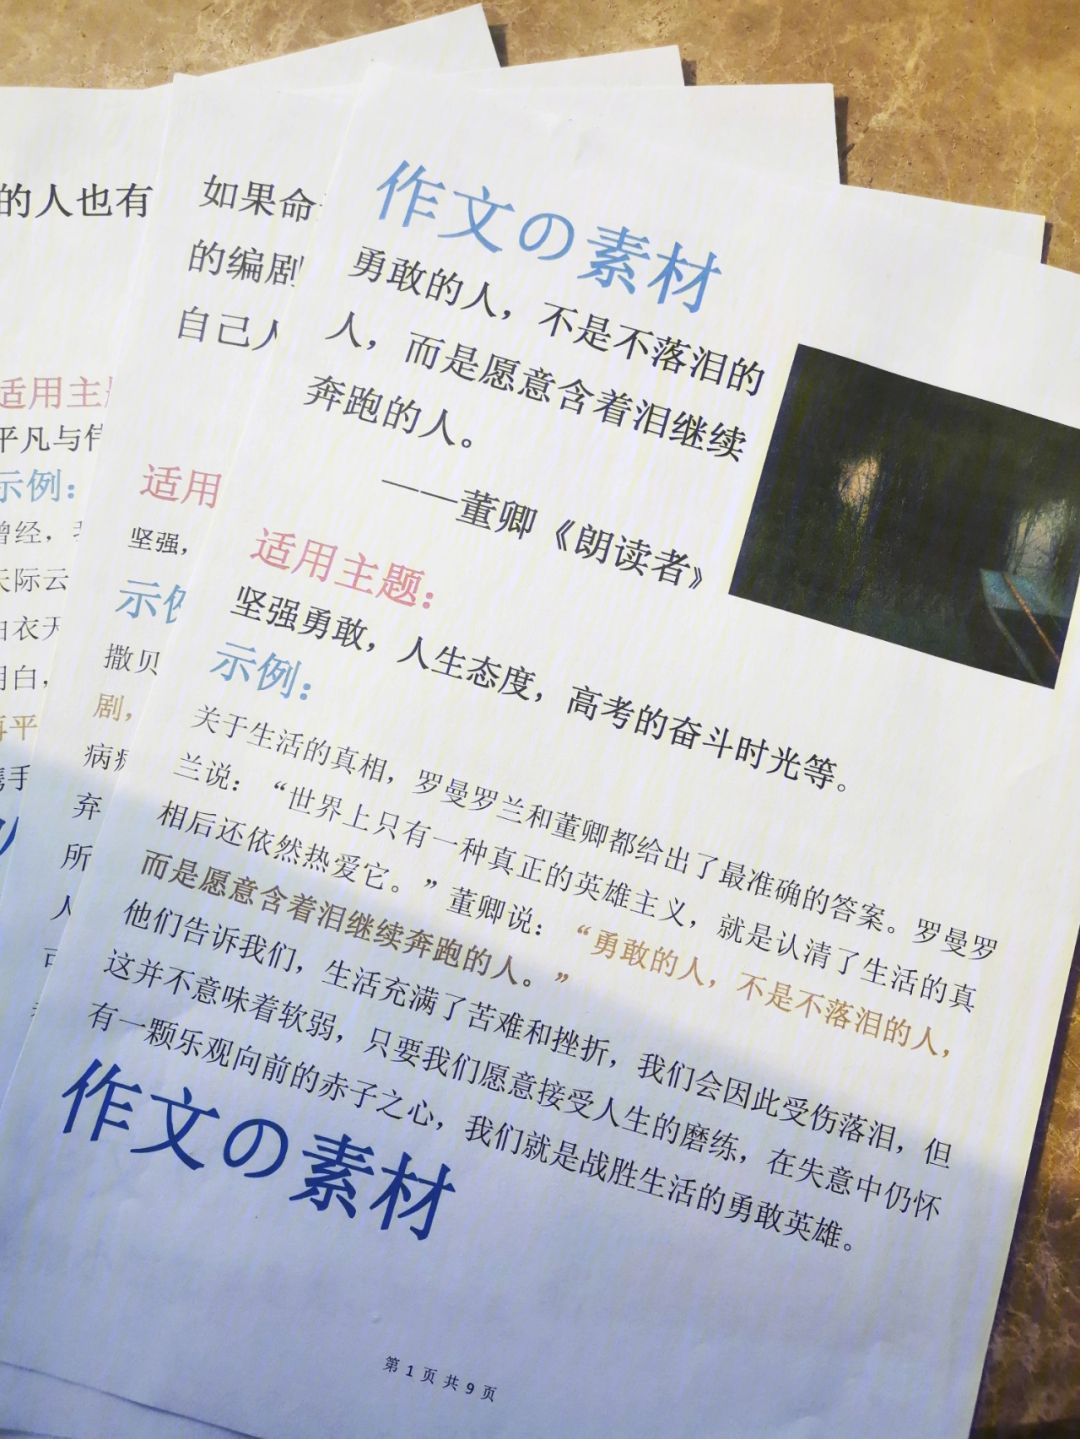 的人也有
适用主
平凡与
示例：
曾经，
天际云
白衣天
明白，
再平
携手
如果命
的编剧
自己人
适用
坚强，
示例
撒贝
剧，
病
弃
所
人
作文の素材
勇敢的人，不是不落泪的
人，而是愿意含着泪继续
奔跑的人。
——董卿《朗读者》
适用主题：
坚强勇敢，人生态度，高考的奋斗时光等。
示例：
关于生活的真相，罗曼罗兰和董卿都给出了最准确的答案。罗曼罗
兰说：“世界上只有一种真正的英雄主义，就是认清了生活的真
相后还依然热爱它。”董卿说：“勇敢的人，不是不落泪的人，
而是愿意含着泪继续奔跑的人。”
他们告诉我们，生活充满了苦难和挫折，我们会因此受伤落泪，但
这并不意味着软弱，只要我们愿意接受人生的磨练，在失意中仍怀
有一颗乐观向前的赤子之心，我们就是战胜生活的勇敢英雄。
作文の素材
第 1 页 共 9 页